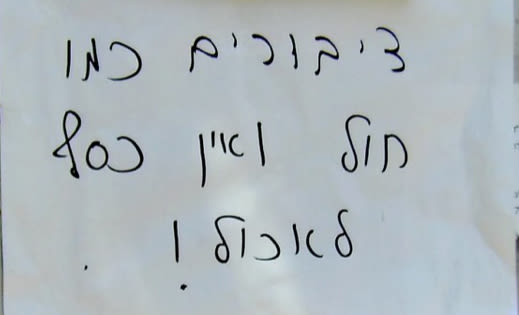 דיבורים כמו
חול ואין כסף
לאכול!